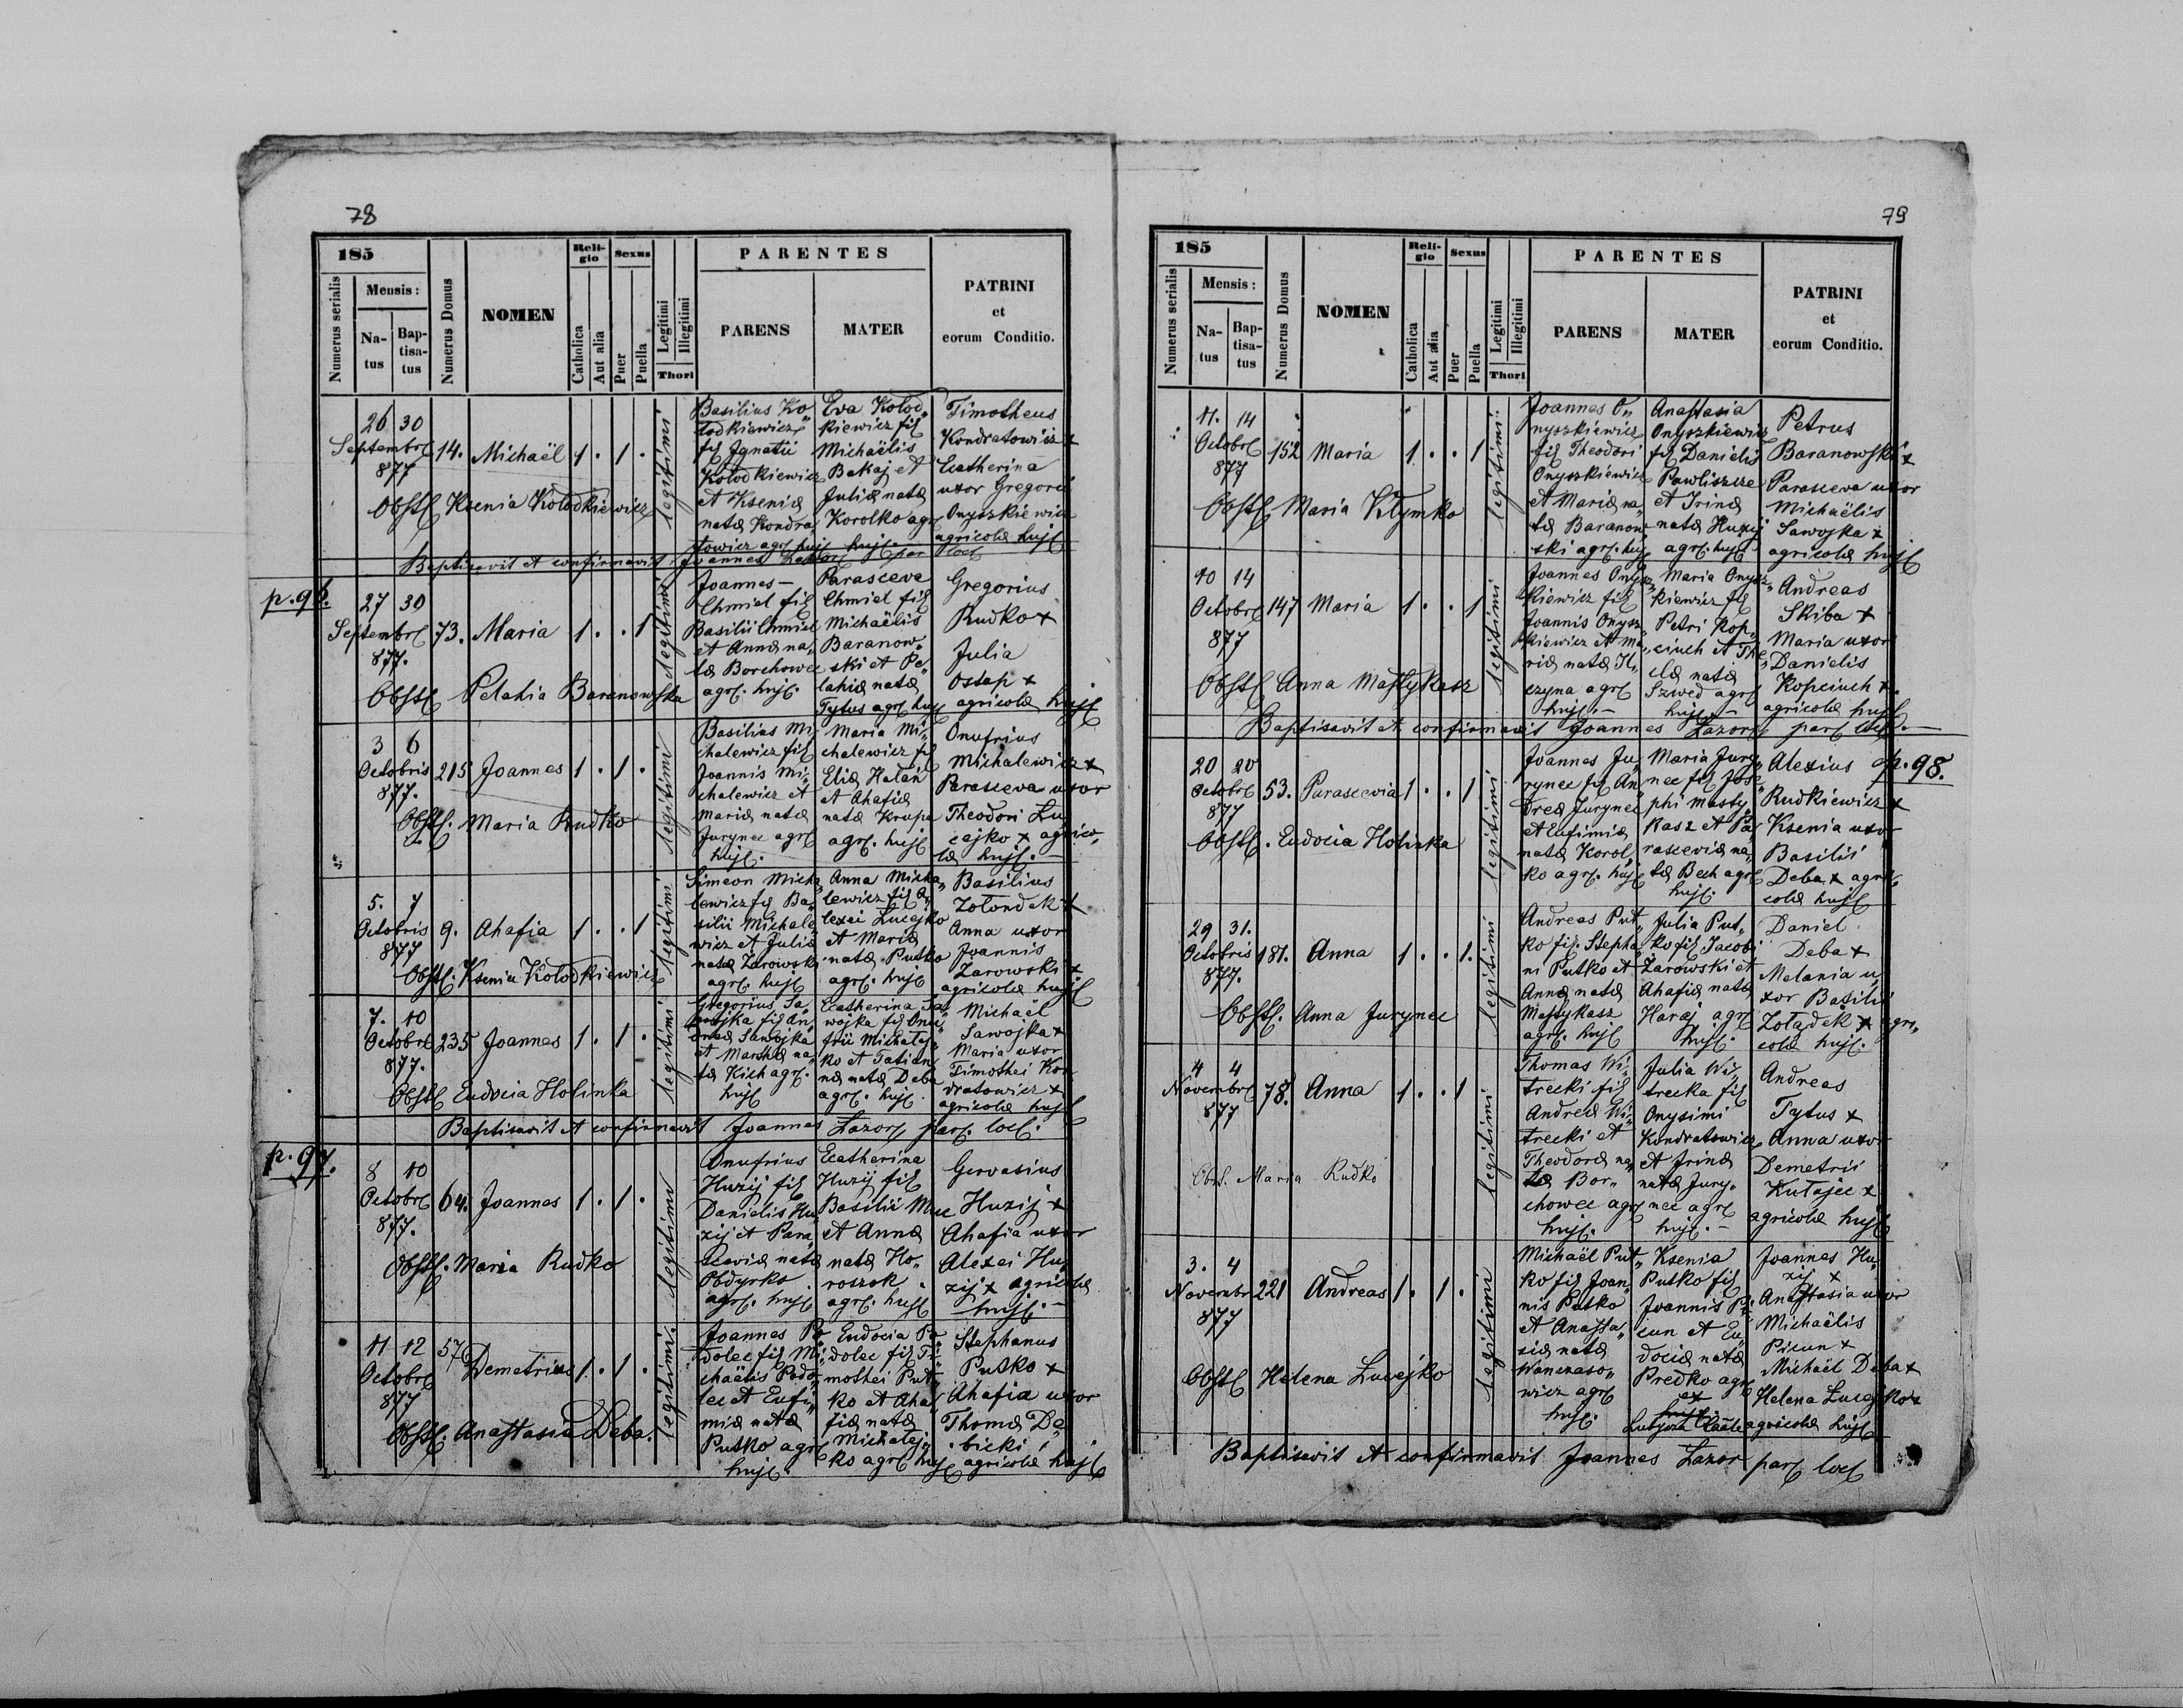 78
185
Numerus serialis
Mensis:
Na-
tus
Bap-
tisa-
tus
Numerus Domus
NOMEN
Reli-
gio
Catholica
Aut alia
Sexus
Puer
Puella
Legitimi
Illegitimi
Thori
PARENTES
PARENS
MATER
PATRINI
et
eorum Conditio.
26 30
Septembr
877
14. Michaël 1 . 1 .
legitimi
Obst Ksenia Kolodkiewicz
Basilius Ko„
lodkiewicz
fil Ignatii
Kolodkiewicz
et Kseniæ
natæ Kondra
towicz agr huj
Eva Kolod„
kiewicz fil
Michaëlis
Bakaj et
Juliæ natæ
Korolko agr
huj.
Timotheus
Kondratowicz x
Ecatherina
uxor Gregorii
Onyszkiewicz
agricolæ huj
Baptisavit et confirmavit Joannes Lazor par loc
p.96.
27 30
Septembr
877.
73. Maria 1 . . 1
legitimi
Obst Pelahia Baranowska
Joannes —
Chmiel fil
Basilii Chmiel
et Annæ na„
tæ Borchowec
agr. huj.
Parasceve
Chmiel fil
Michaëlis
Baranow„
ski et Pe„
lahiæ natæ
Tytus agr huj
Gregorius
Rudko x
Julia
Ostap x
agricolæ huj
3 6
Octobris
877.
215 Joannes 1 . 1 .
legitimi
Obst. Maria Rudko
Basilius Mi„
chalewicz fil
Joannis Mi„
chalewicz et
Mariæ natæ
Jurynec agr
huj.
Maria Mi„
chalewicz fil
Eliæ Hałań
et Ahafiæ
natæ Krupa
agr. huj
Onufrius
Michalewicz x
Parasceva uxor
Theodori Lu„
cejko x agrico„
læ huj. —
5. 7
Octobris
877
9. Ahafia 1 . . 1
legitimi
Obst. Ksenia Kolodkiewicz
Simeon Micha„
lewicz fil Ba„
silii Michale„
wicz et Juliæ
natæ Zarowski
agr. huj
Anna Micha„
lewicz fil A„
lexei Lucejko
et Mariæ
natæ Putko
agr. huj
Basilius
Zołondek x
Anna uxor
Joannis
Zarowski x
agricolæ huj
7. 10
Octobr
877.
235 Joannes 1 . 1 .
legitimi
Obst Eudocia Holinka
Gregorius Sa„
wojka fil An„
dreæ Sawojka
et Marthæ na„
tæ Kich agr.
huj
Ecatherina Sa„
wojka fil Onu„
frii Michałej„
ko et Tatian„
næ natæ Deba
agr. huj.
Michaël
Sawojka x
Maria uxor
Timothei Kon
dratowicz x
agricolæ huj
Baptisavit et confirmavit Joannes Lazor par. loc.
p.97.
8 10
Octobr
877.
64. Joannes 1 . 1 .
legitimi
Obst. Maria Rudko
Onufrius
Huzij fil
Danielis Hu„
zij et Para„
sceviæ natæ
Obdyrko
agr. huj
Ecatherina
Huzij fil
Basilii Muc
et Annæ
natæ Ho„
roszok
agr. huj
Gervasius
Huzij x
Ahafia uxor
Alexei Hu„
zij x agricolæ
huj. —
11 12
Octobr
877
57 Demetrius 1 . 1 .
legitimi.
Obst. Anastasia Deba.
Joannes Po„
dolec fil Mi„
chaëlis Podo„
lec et Eufi„
miæ natæ
Putko agr
huj.
Eudocia Po„
dolec fil Ti„
mothei Put„
ko et Aha„
fiæ natæ
Michałej„
ko agr huj
Stephanus
Putko x
Ahafia uxor
Thomæ De„
bicki x
agricolæ huj
79
185
Numerus serialis
Mensis:
Na-
tus
Bap-
tisa-
tus
Numerus Domus
NOMEN
Reli-
gio
Catholica
Aut alia
Sexus
Puer
Puella
Legitimi
Illegitimi
Thori
PARENTES
PARENS
MATER
PATRINI
et
eorum Conditio.
11. 14
Octobr
877
152 Maria 1 . . 1
legitimi.
Obst Maria Klymko
Joannes O„
nyszkiewicz
fil Theodori
Onyszkiewicz
et Mariæ na„
tæ Baranow„
ski agr. huj
Anastasia
Onyszkiewicz
fil Danielis
Pawliszcze
et Irinæ
natæ Huzij
agr. huj
Petrus
Baranowski x
Parasceva uxor
Michaëlis
Sawojka x
agricolæ huj
10 14
Octobr
877
147 Maria 1 . . 1
legitimi
Obst Anna Mastykasz
Joannes Onysz„
kiewicz fil
Joannis Onysz„
kiewicz et Ma„
riæ natæ H„
czyna agr
huj. —
Maria Onysz„
kiewicz fil
Petri Kop„
ciuch et The„
clæ natæ
Szwed agr
huj. —
Andreas
Skiba x
Maria uxor
Danielis
Kopciuch x.
agricolæ huj
Baptisavit et confirmavit Joannes Lazor par loc. —
p.98.
20 20
Octobr
877
53. Parascevia 1 . . 1
legitimi
Obst. Eudocia Holinka
Joannes Ju„
rynec fil An„
dreæ Jurynec
et Eufimiæ
natæ Korol„
ko agr. huj
Maria Jury„
nec fil Jose„
phi Masty„
kasz et Pa„
rasceviæ na„
tæ Bech agr
huj.
Alexius
Rudkiewicz x
Ksenia uxor
Basilii
Deba x agri„
colæ huj
29 31.
Octobris
877.
181. Anna 1 . . 1.
legitimi
Obst. Anna Jurynec
Andreas Put„
ko fil. Stepha„
ni Putko et
Annæ natæ
Mastykasz
agr. huj
Julia Put„
ko fil Jacobi
Zarowski et
Ahafiæ natæ
Haraj agr
huj.
Daniel
Deba x
Melania u„
xor Basilii
Zołądek x agri„
colæ huj.
4 4
Novembr
877
78. Anna 1 . . 1
legitimi
Obst. Maria Rudko
Thomas Wi„
trecki fil
Andreæ Wi„
trecki et
Theodoræ na„
tæ Bor„
chowec agr
huj.
Julia Wi„
trecka fil
Onysimi
Kondratowicz
et Irinæ
natæ Jury„
nec agr
huj. —
Andreas
Tytus x
Anna uxor
Demetrii
Kułajec x
agricolæ huj
3. 4
Novembr
877
221 Andreas 1 . 1 .
legitimi
Obst Helena Lucejko
Michaël Put„
ko fil Joan„
nis Putko
et Anasta„
siæ natæ
Wanczaso„
wicz agr
huj.
Ksenia
Putko fil
Joannis Pi„
cun et Eu„
dociæ natæ
Predko agr
ex
Joannes Hu„
zij x
Anastasia uxor
Michaëlis
Picun x
Michaël Deba x
Helena Lucejko x
agricolæ huj
Baptisavit et confirmavit Joannes Lazor par loc